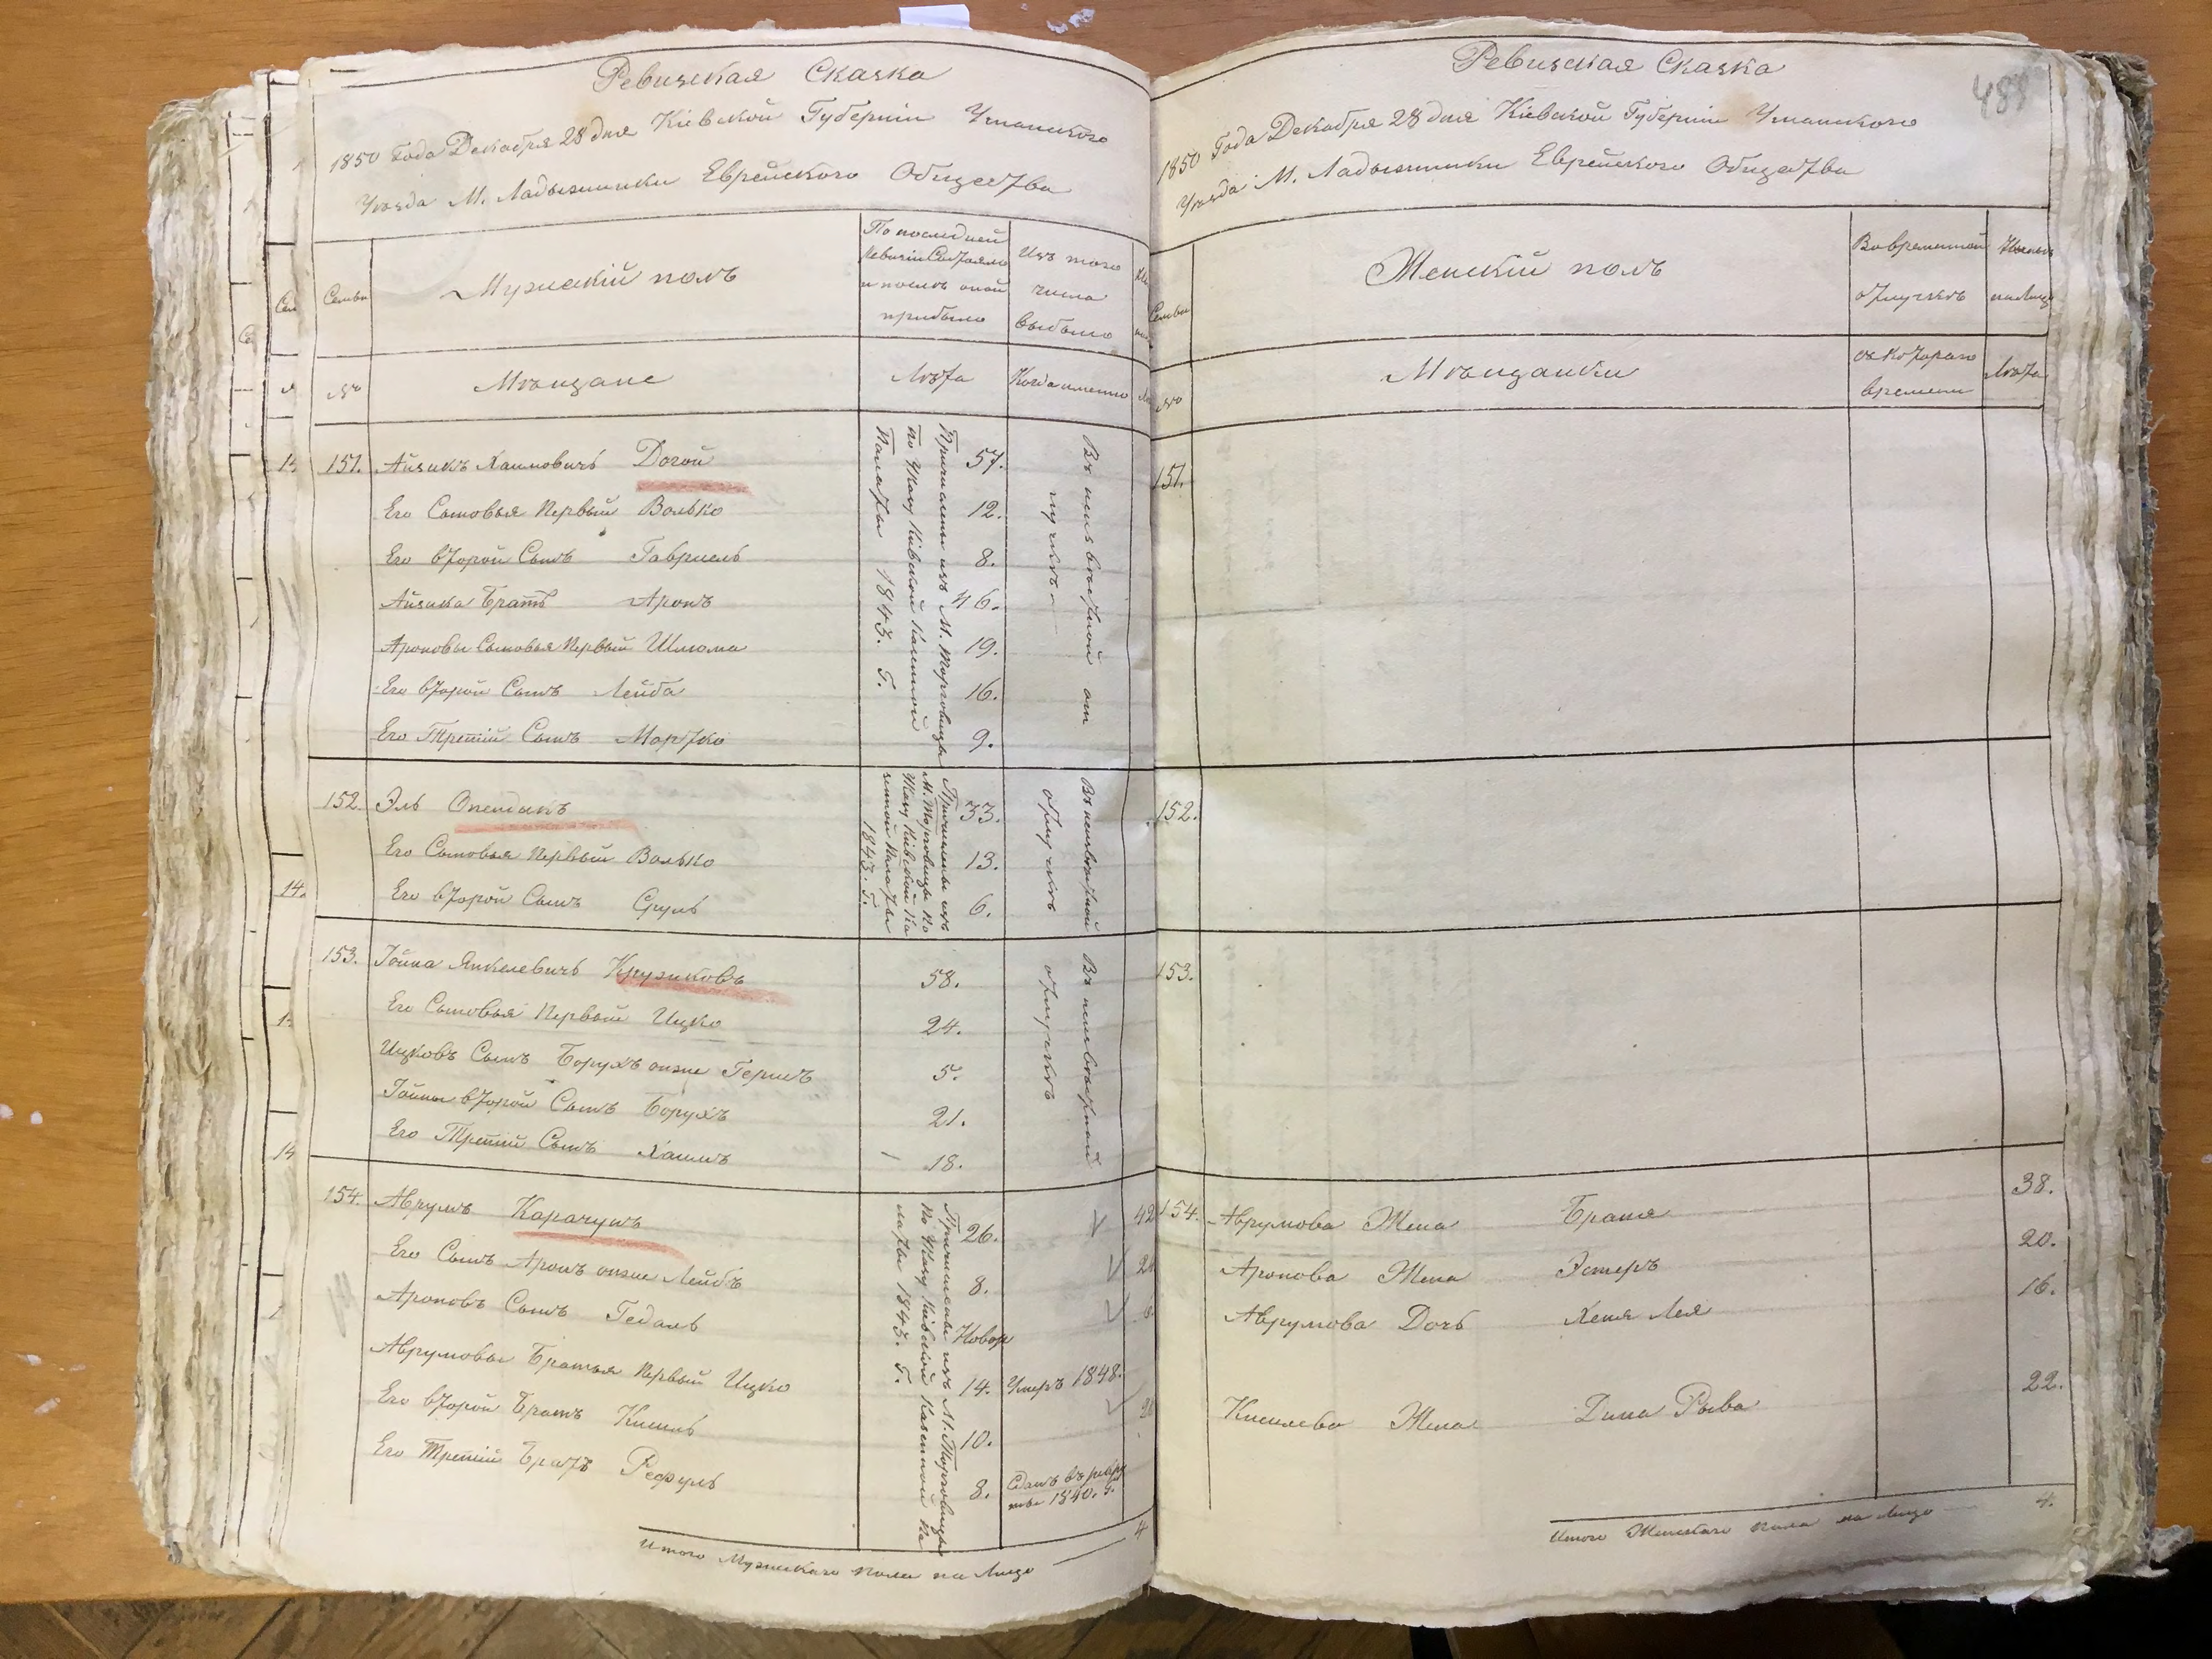 Ревизская Сказка
1850 Года Декабря 28 дня Кіевской Губерніи Уманского
Уѣзда М. Ладыжинки Еврейского Общества
Семьи
Мужескій полъ
По последней
Ревизіи Состояло
и послѣ оной
прибыло
Изъ того
числа
выбыло
№
Мѣщане
Лѣта
Когда именно
151. Айзикъ Хаимовичъ Догой 57.
Его Сыновья Первый Волько 12.
Его второй Сынъ Гавриель 8.
Айзика Братъ Аронъ 46.
Ароновы Сыновья Первый Шлиома 19.
Его второй Сынъ Лейба 16.
Его Третій Сынъ Мортко 9.
Причислены изъ М. Торговицы
по Указу Кіевской Казенной
Палаты 1843. Г.
Въ неизвѣстной от
лучкѣ
152. Эль Опендикъ 33.
Его Сыновья Первый Волько 13.
Его второй Сынъ Сруль 6.
Причислены изъ
М. Торговицы по
Указу Кіевской Ка
зенной Палаты
1843. Г.
Въ неизвѣстной
отлучкѣ
153. Іойна Янкелевичъ Кружковъ 58.
Его Сыновья Первый Ицко 24.
Ицковъ Сынъ Борухъ онже Гершъ 5.
Іойны второй Сынъ Борухъ 21.
Его Третій Сынъ Хаимъ 18.
Въ неизвѣстной
отлучкѣ
154. Аврумъ Карачунъ 26. 42
Его Сынъ Аронъ онже Лейбъ 8.
Ароновъ Сынъ Гедаль Новор
Аврумовы Братья Первый Ицко 14. Умеръ 1848.
Его второй Братъ Кисиль 10.
Его Третій Братъ Рефуль 8. Сданъ въ рекру
ты 1840. г.
Причислены изъ М. Торговицы
по Указу Кіевской Казенной Па
латы 1843. Г.
Итого Мужескаго пола на Лицо 4
Ревизская Сказка
488
1850 Года Декабря 28 дня Кіевской Губерніи Уманского
Уѣзда М. Ладыжинки Еврейского Общества
Семьи
Женскій полъ
Во временной
отлучкѣ
на Лицо
№
Мѣщанки
съ котораго
времени
Лѣта
151.
152.
153.
154. Аврумова Жена Брана 38.
Аронова Жена Эстеръ 20.
Аврумова Дочь Хеня Лея 16.
Кисилева Жена Дина Рыва 22.
Итого Женскаго пола на Лицо 4.